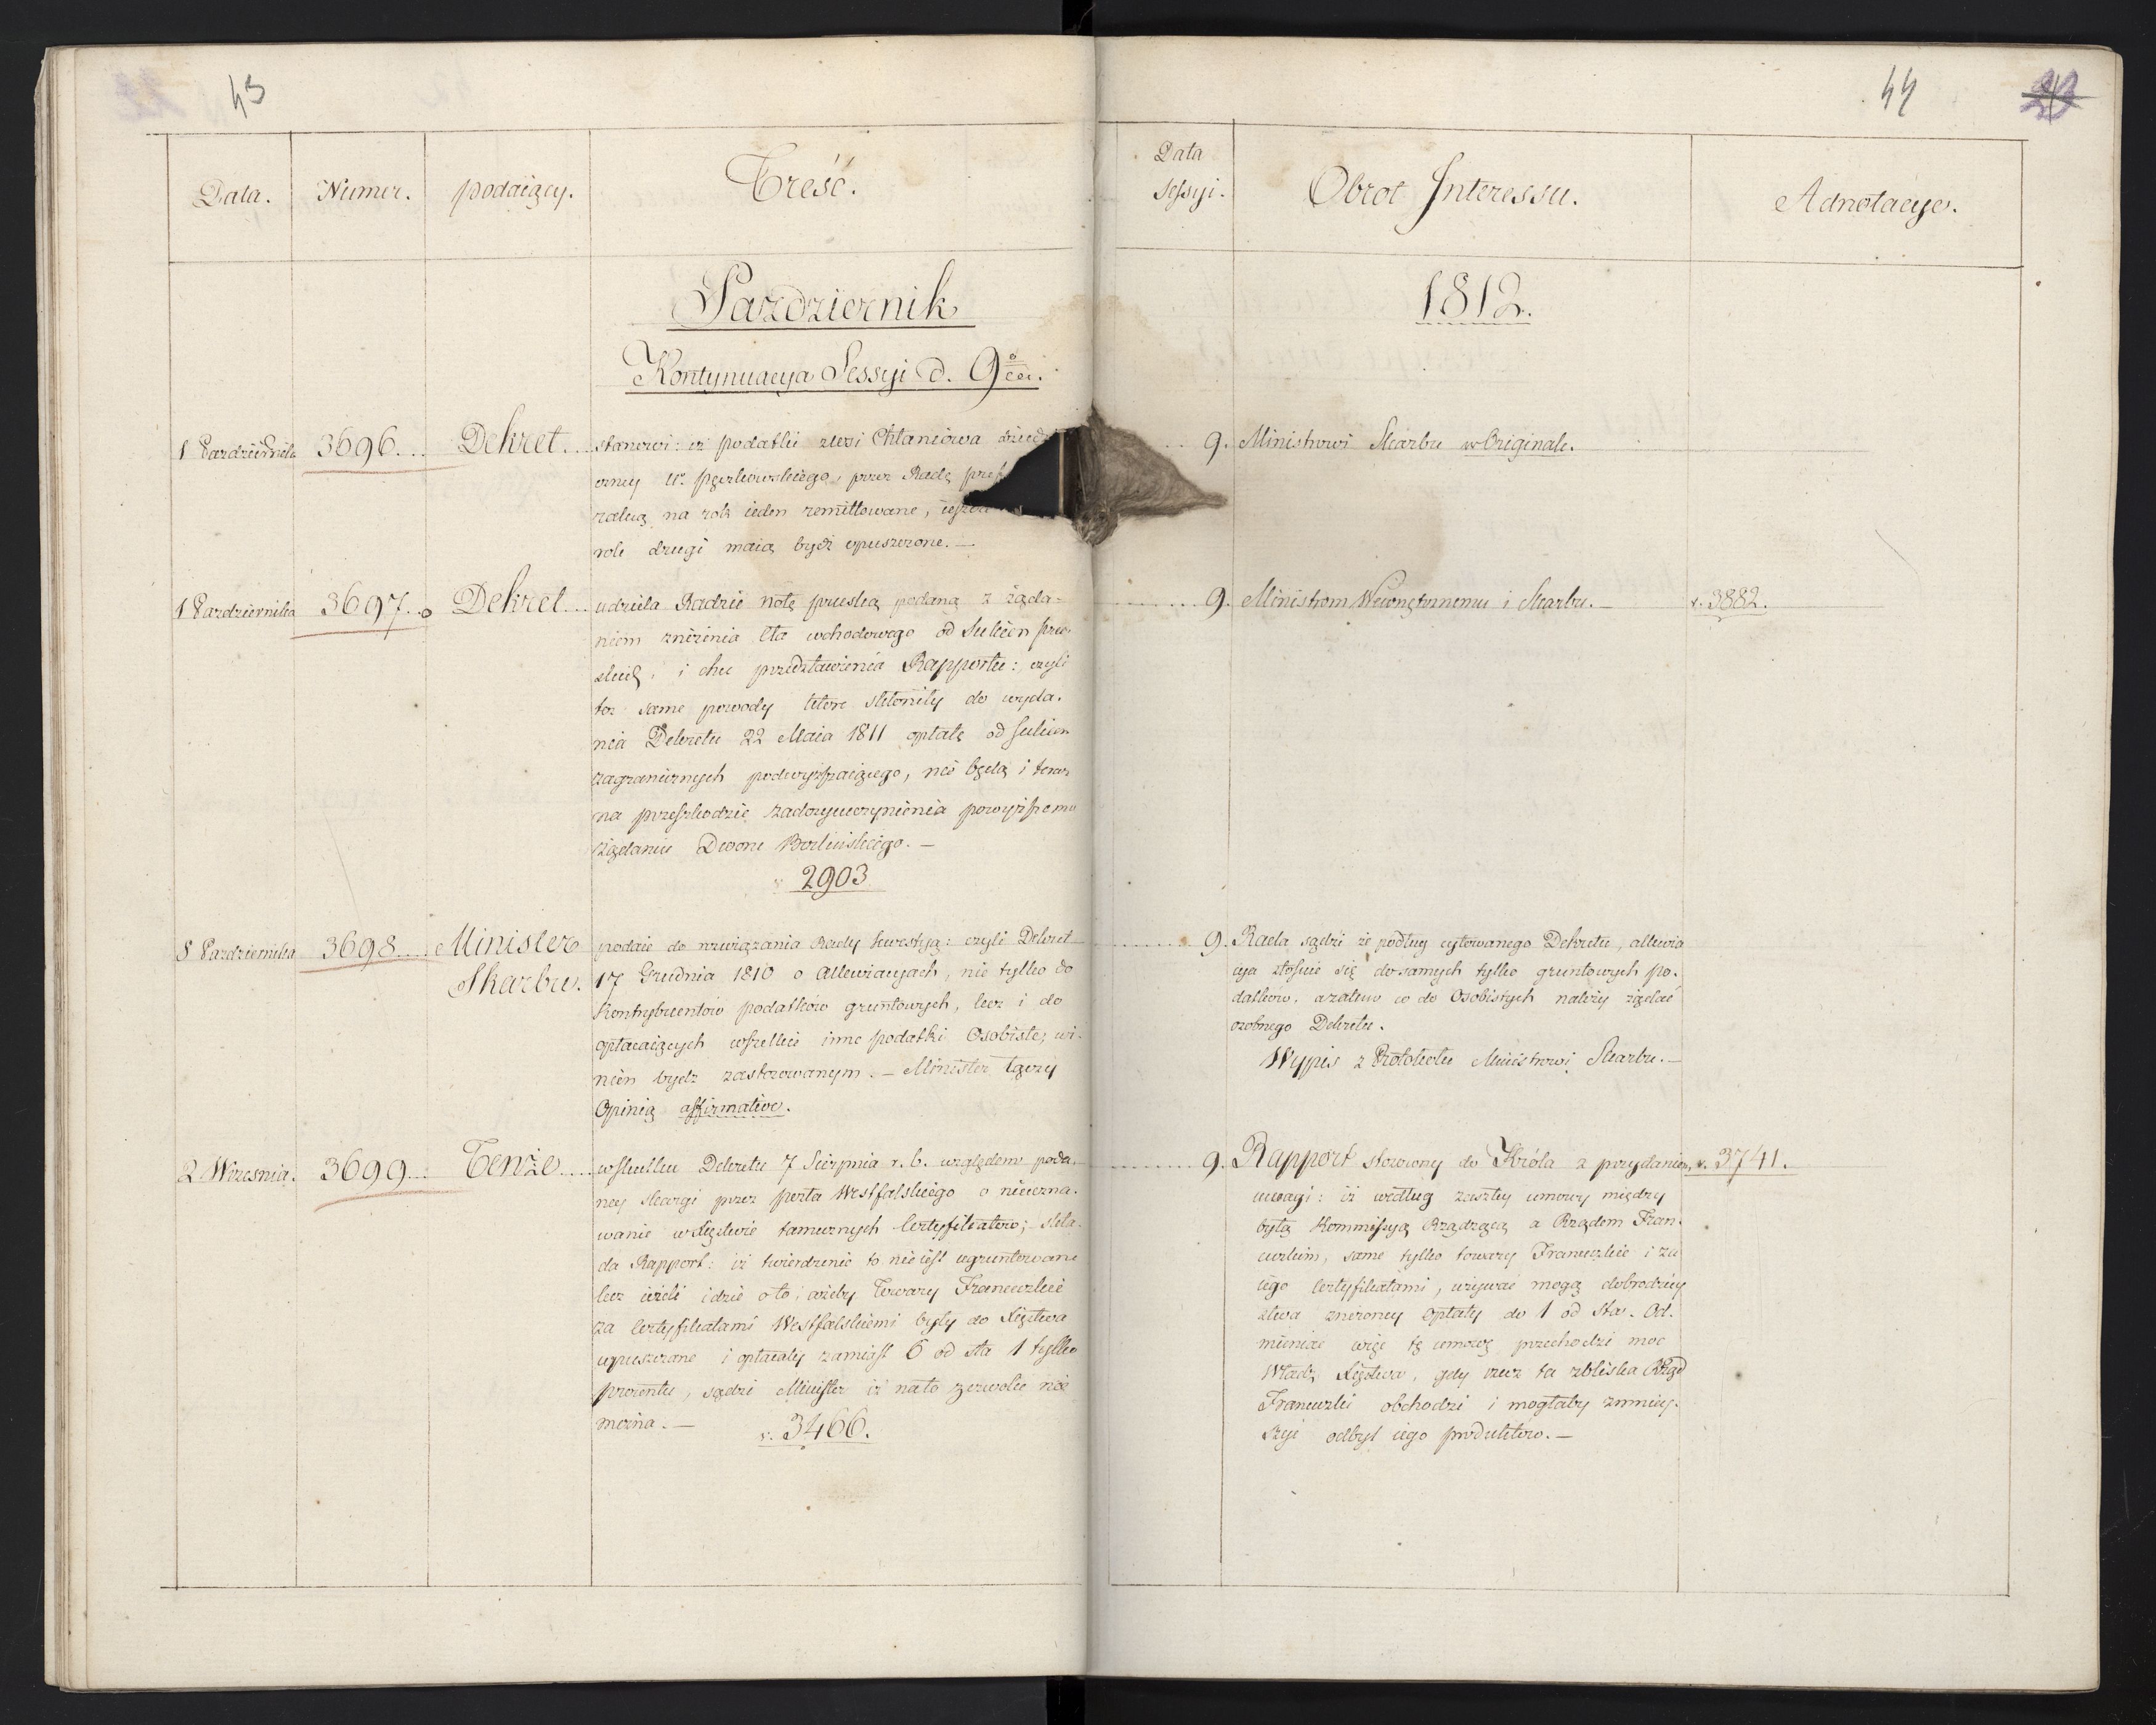 43
Data.
Numer.
podaiący.
Treść.
Pazdziernik
Kontynuacya Sessyi d. 9
1 Pazdziernika 3696. Dekret. stanowi: iż podatki z wsi Chlaniowa
przez Radę
na rok ieden remittowane, ieszcze
rok drugi maią bydź opuszczone. —
1 Pazdziernika 3697. Dekret. udziela Radzie notę pruską podaną z żąda-
niem zniżenia Cła wchodowego od Sukien pru-
skich, i chce przedstawienia Rapportu: czyli
też same powody które skłoniły do wyda-
nia Dekretu 22 Maia 1811 opłatę od sukien
zagranicznych podwyższaiącego, nie będą i teraz
na przeszkodzie zadosyuczynienia powyższemu
żądaniu Dworu Berlinskiego. —
v. 2903
8 Pazdziernika 3698. Minister podaie do rozwiązania Rady kwestyą: czyli Dekret
Skarbu. 17 Grudnia 1810 o allewiacyach, nie tylko do
Kontrybuentów podatków gruntowych, lecz i do
opłacaiących wszelkie inne podatki Osobiste, wi-
nien bydz zastosowanym. — Minister łączy
Opinią affirmative.
2 Wrzesnia. 3699. Tenże. wskutku Dekretu 7 Sierpnia r. b. względem poda-
ney skargi przez posła Westfalskiego o nieuzna-
wanie w Xięztwie tamecznych Certyfikatów; skła-
da Rapport: iż twierdzenie to nie iest ugruntowane
lecz ieżeli idzie o to, ażeby Towary Francuzkie
za certyfikatami Westfalskiemi były do Xięztwa
wpuszczane i opłacały zamiast 6 od sta 1 tylko
procentu, sądzi Minister iż na to zezwolić nie
można. — v. 3466.
44
Data
Sessyi.
Obrot Interessu.
Adnotacye.
1812.
9. Ministrowi Skarbu w Originale.
9. Ministrom Wewnętrznemu i Skarbu. — v. 3882.
9. Rada sądzi że podług cytowanego Dekretu, allewia
cya stosuie się do samych tylko gruntowych po-
datków, a zatem co do Osobistych należy żądać
osobnego Dekretu.
Wypis z Protokołu Ministrowi Skarbu. —
9. Rapport stosowny do Króla z przydaniem v. 3741.
uwagi: iż według zaszłey umowy między
byłą Kommissyą Rządzącą a Rządem Fran-
cuzkim, same tylko towary Francuzkie i za
iego certyfikatami, używać mogą dobrodziey
stwa zniżoney Opłaty do 1 od sta. Od-
mieniać więc tę umowę przechodzi moc
Władz Xięztwa, gdy rzecz ta zbliska Rząd
Francuzki obchodzi i mogłaby zmniey-
szyć odbyt iego produktów. —